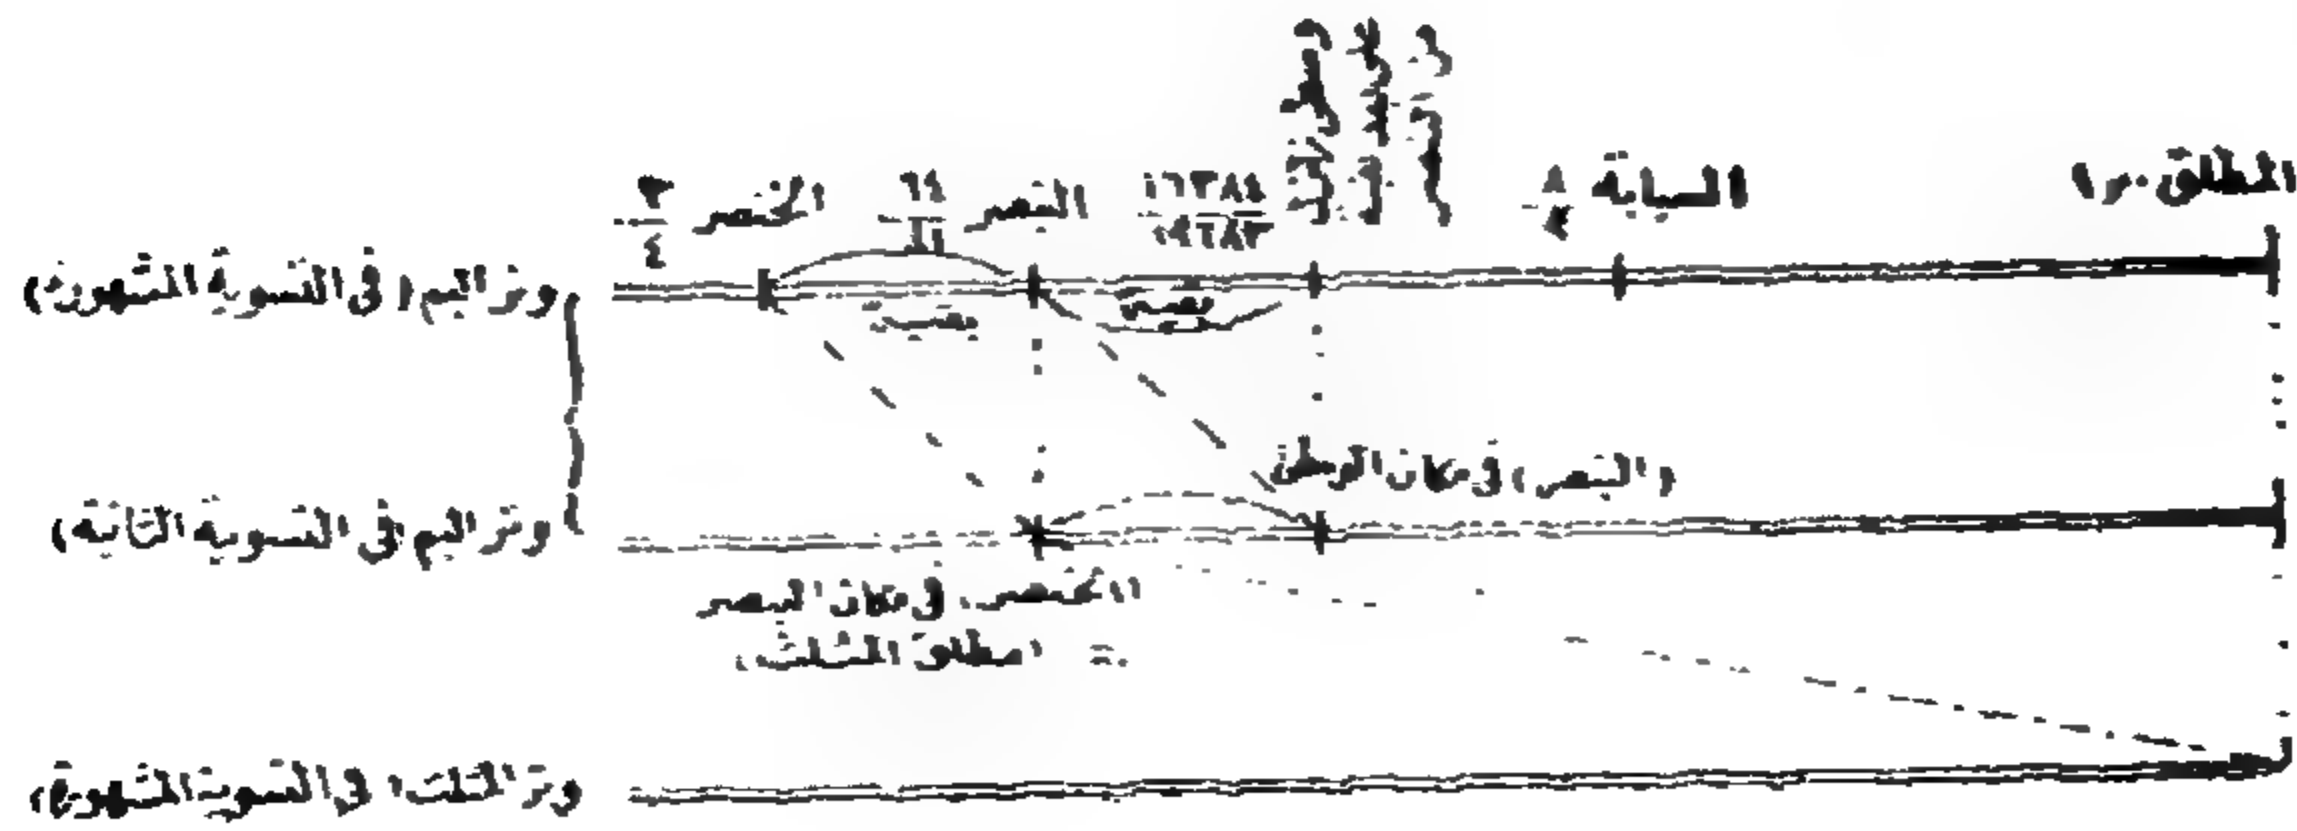 المطلق ١٫٠
السبابة ٨/٩
١٦٣٨٤/١٩٦٨٣
البنصر ٦٤/٨١
الخنصر ٣/٤
وتر البم (في التسوية المشهورة)
بقية
بقية
(البنصر) في مكان الوسطى
وتر البم (في التسوية الثانية)
(الخنصر) في مكان البنصر
= (مطلق المثلث)
وتر المثلث (في التسوية المشهورة)